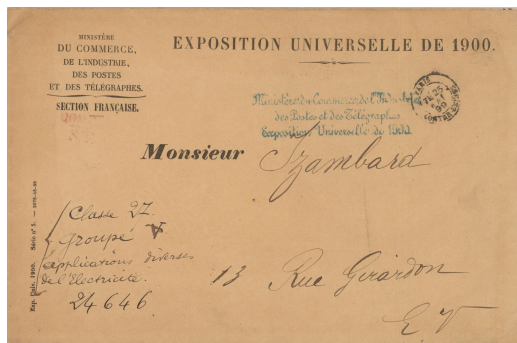 MINISTÈRE
DU COMMERCE,
DE L'INDUSTRIE,
DES POSTES
ET DES TÉLÉGRAPHES.
SECTION FRANÇAISE.
EXPOSITION UNIVERSELLE DE 1900.
Ministère du Commerce de l'Industrie
des Postes et des Télégraphes
Exposition Universelle de 1900
PARIS
25
99
Monsieur Izambard
Classe 27
Groupe V
applications diverses
de l'Electricité.
24646
13 Rue Girardon
E V
Exp. Univ. 1900. Série n° 5.